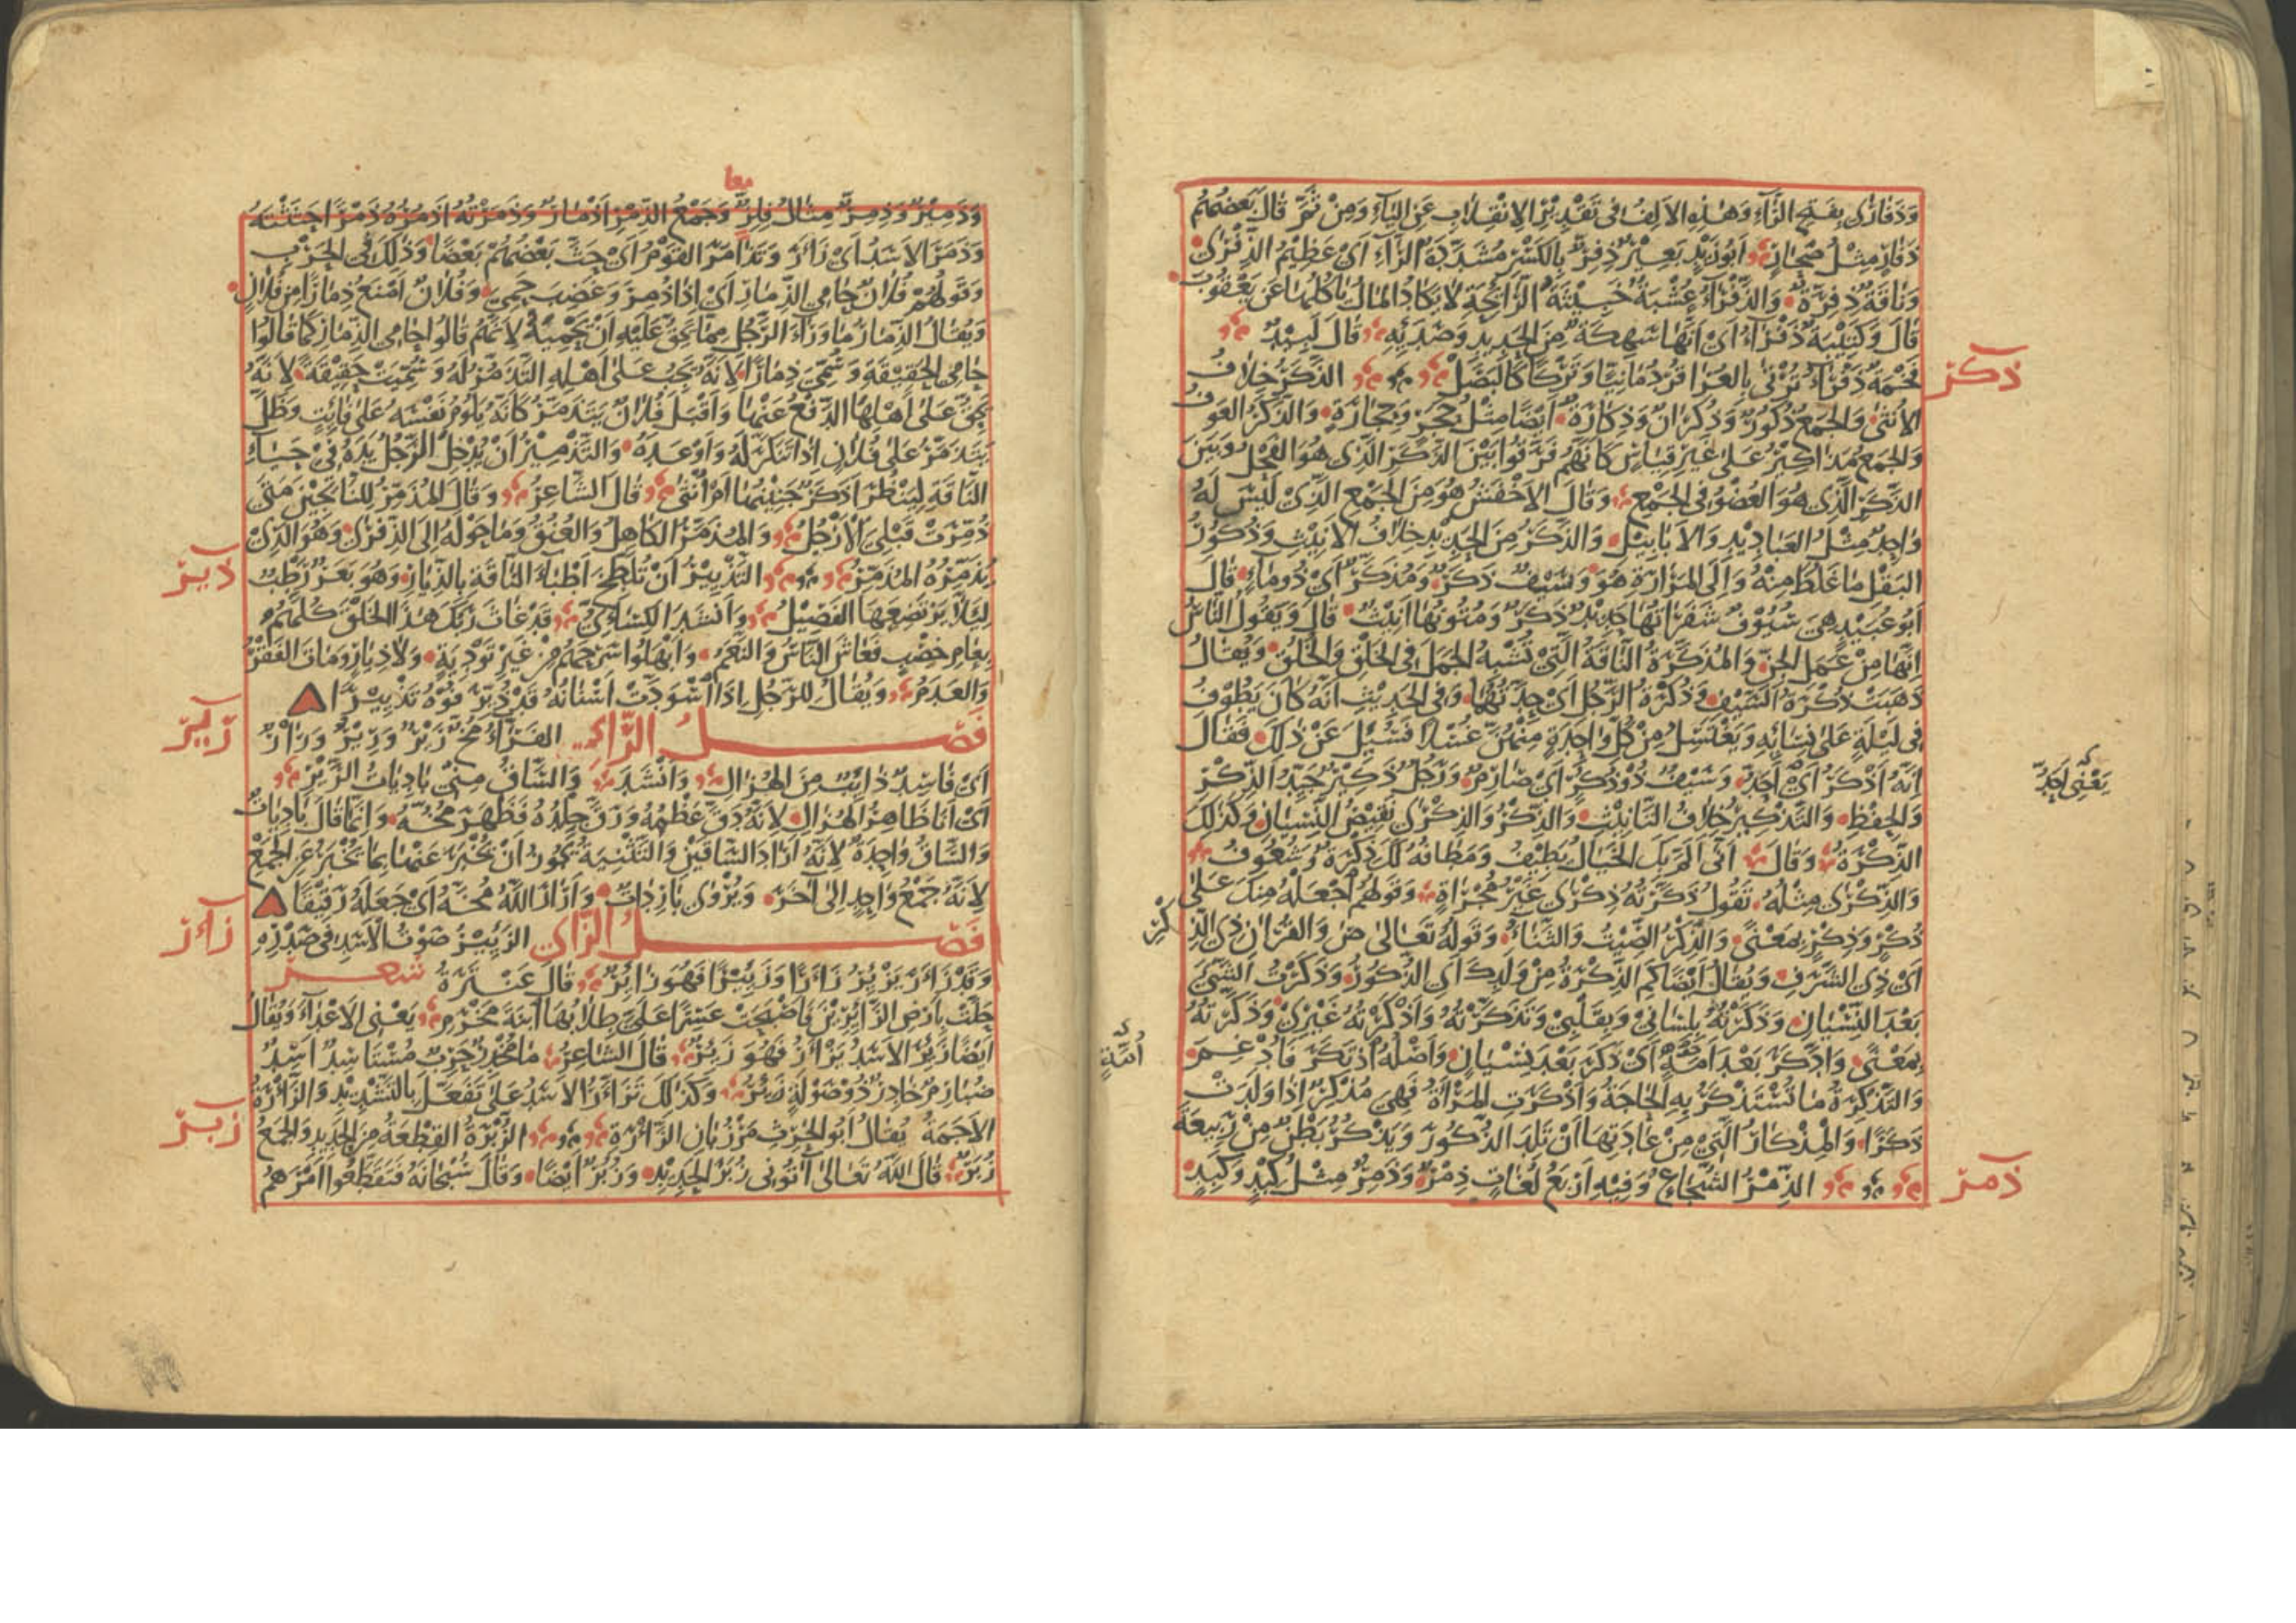 وَذَفَارٰى بِفَتْحِ الرَّآءِ وَهٰذِهِ الاَلِفُ فِى تَقْدِيْرِ الاِنْقِلَابِ عَنِ اليَآءِ وَمِنْ ثَمَّ قَالَ بَعْضُهُمْ
ذَفَارٍ مِثْلُ صَحَارٍ اَبُوزَيْدٍ بَعِيْرٌ ذِفِرٌّ بِالكَسْرِ مُشَدَّدَةُ الرَّآءِ اَىْ عَظِيْمُ الذِّفْرٰى
وَنَاقَةٌ ذِفِرَّةٌ وَالذَّفْرَآءُ عُشْبَةٌ خَبِيْثَةُ الرَّائِحَةِ لَا يَكَادُ المَالُ يَاكُلُهَا عَنْ يَعْقُوْبَ
قَالَ وَكَتِيْبَةٌ ذَفْرَآءُ اَىْ اَنَّهَا سَهِكَةٌ مِنَ الحَدِيدِ وَصَدَئِهِ قَالَ لَبِيْدٌ
فَخْمَةٌ ذَفْرَآءُ تُرْتٰى بِالعُرَا قُرْدُمَانِيًّا وَتَرْكًا كَالبَصَلْ الذَّكَرُ خِلَافُ
ذكر
الاُنْثٰى وَالجَمْعُ ذُكُوْرٌ وَذُكْرَانٌ وَذِكَارَةٌ اَيْضًا مِثْلُ حَجَرٍ وَحِجَارَةٍ وَالذَّكَرُ العَوْفُ
وَالجَمْعُ مَذَاكِيْرُ عَلٰى غَيْرِ قِيَاسٍ كَاَنَّهُمْ فَرَّقُوا بَيْنَ الذَّكَرِ الَّذِى هُوَ الفَحْلُ وَبَيْنَ
الذَّكَرِ الَّذِى هُوَ العُضْوُ فِى الجَمْعِ وَقَالَ الاَخْفَشُ هُوَ مِنَ الجَمْعِ الَّذِىْ لَيْسَ لَهُ
وَاحِدٌ مِثْلُ العَبَادِيْدِ وَالاَبَابِيْلِ وَالذَّكَرُ مِنَ الحَدِيْدِ خِلَافُ الاَنِيْثِ وَذُكُوْرُ
البَقْلِ مَا غَلُظَ مِنْهُ وَاِلَى المَرَارَةِ هُوَ وَسَيْفٌ ذَكَرٌ وَمُذَكَّرٌ اَىْ ذُو مَاءٍ قَالَ
اَبُو عُبَيْدٍ هِىَ سُيُوْفٌ شَفَرَاتُهَا حَدِيْدٌ ذَكَرٌ وَمُتُونُهَا اَنِيْثٌ قَالَ وَيَقُولُ النَّاسُ
اِنَّهَا مِنْ عَمَلِ الجِنِّ وَالمُذَكَّرَةُ النَّاقَةُ الَّتِىْ تُشْبِهُ الجَمَلَ فِى الخَلْقِ وَالخُلُقِ وَيُقَالُ
ذَهَبَتْ ذُكْرَةُ السَّيْفِ وَذُكْرَةُ الرَّجُلِ اَىْ حِدَّتُهُمَا وَفِى الحَدِيْثِ اَنَّهُ كَانَ يَطُوْفُ
فِى لَيْلَةٍ عَلٰى نِسَائِهِ وَيَغْتَسِلُ مِنْ كُلِّ وَاحِدَةٍ مِنْهُنَّ غُسْلًا فَسُئِلَ عَنْ ذٰلِكَ فَقَالَ
اِنَّهُ اَذْكَرُ اَىْ اَحَدُّ وَسَيْفٌ ذُوْ ذُكْرٍ اَىْ صَارِمٌ وَرَجُلٌ ذَكِيْرٌ جَيِّدُ الذِّكْرِ
يَعْنِى اَحَدُّ
وَالحِفْظِ وَالتَّذْكِيْرُ خِلَافُ التَّانِيْثِ وَالذِّكْرُ وَالذِّكْرٰى نَقِيْضُ النِّسْيَانِ وَكَذٰلِكَ
الذُّكْرَةُ وَقَالَ اَنّٰى اَلَمَّ بِكَ الخَيَالُ يَطِيْفُ وَمَطَافُهُ لَكَ ذُكْرَةٌ وَشُعُوفُ
وَالذِّكْرٰى مِثْلُهُ تَقُولُ ذَكَّرْتُهُ ذِكْرٰى غَيْرَ مُجْرَاةٍ وَقَوْلُهُمْ اجْعَلْهُ مِنْكَ عَلٰى
ذُكْرٍ وَذِكْرٍ بِمَعْنًى وَالذِّكْرُ الصِّيْتُ وَالثَّنَاءُ وَقَوْلُهُ تَعَالٰى صۤ وَالقُرْاٰنِ ذِى الذِّكْرِ
اَىْ ذِى الشَّرَفِ وَيُقَالُ اَيْضًا كَمِ الذِّكْرَةُ مِنْ وَلَدِكَ اَىِ الذُّكُوْرُ وَذَكَرْتُ الشَّيْءَ
بَعْدَ النِّسْيَانِ وَذَكَرْتُهُ بِلِسَانِىْ وَبِقَلْبِىْ وَتَذَكَّرْتُهُ وَاَذْكَرْتُهُ غَيْرِىْ وَذَكَّرْتُهُ
بِمَعْنًى وَادَّكَرَ بَعْدَ اُمَّةٍ اَىْ ذَكَرَ بَعْدَ نِسْيَانٍ وَاَصْلُهُ اذْتَكَرَ فَاُدْغِمَ
وَالتَّذْكِرَةُ مَا تُسْتَذْكَرُ بِهِ الحَاجَةُ وَاَذْكَرَتِ المَرْاَةُ فَهِىَ مُذْكِرٌ اِذَا وَلَدَتْ
ذَكَرًا وَالمِذْكَارُ الَّتِىْ مِنْ عَادَتِهَا اَنْ تَلِدَ الذُّكُورَ وَيَذْكُرُ بَطْنٌ مِنْ رَبِيعَةَ
الذِّمْرُ الشُّجَاعُ وَفِيْهِ اَرْبَعُ لُغَاتٍ ذِمْرٌ وَذَمِرٌ مِثْلُ كِبْدٍ وَكَبِدٍ
ذمر
معا
وَذَمِيْرٌ وَذِمِرٌّ مِثَالُ فِلِزٍّ وَجَمْعُ الذِّمْرِ اَذْمَارٌ وَذَمَرْتُهُ اَذْمُرُهُ ذَمْرًا حَثَثْتُهُ
وَذَمَرَ الاَسَدُ اَىْ زَأَرَ وَتَذَامَرَ القَوْمُ اَىْ حَثَّ بَعْضُهُمْ بَعْضًا وَذٰلِكَ فِى الحَرْبِ
وَقَوْلُهُمْ فُلَانٌ حَامِى الذِّمَارِ اَىْ اِذَا ذُمِرَ وَغَضِبَ حَمِىَ وَفُلَانٌ اَمْنَعُ ذِمَارًا مِنْ فُلَانٍ
وَيُقَالُ الذِّمَارُ مَا وَرَآءَ الرَّجُلِ مِمَّا يَحِقُّ عَلَيْهِ اَنْ يَحْمِيَهُ لِاَنَّهُمْ قَالُوا حَامِى الذِّمَارِ كَمَا قَالُوا
حَامِى الحَقِيْقَةِ وَسُمِّىَ ذِمَارًا لِاَنَّهُ يَجِبُ عَلٰى اَهْلِهِ التَّذَمُّرُ لَهُ وَسُمِّيَتْ حَقِيْقَةً لِاَنَّهُ
يَحِقُّ عَلٰى اَهْلِهَا الدَّفْعُ عَنْهَا وَاَقْبَلَ فُلَانٌ يَتَذَمَّرُ كَاَنَّهُ يَلُوْمُ نَفْسَهُ عَلٰى فَائِتٍ وَظَلَّ
يَتَذَمَّرُ عَلٰى فُلَانٍ اِذَا تَنَكَّرَ لَهُ وَاَوْعَدَهُ وَالتَّذْمِيْرُ اَنْ يُدْخِلَ الرَّجُلُ يَدَهُ فِىْ حَيَاءِ
النَّاقَةِ لِيَنْظُرَ اَذَكَرٌ جَنِيْنُهَا اَمْ اُنْثٰى قَالَ الشَّاعِرُ وَقَالَ المُذَمِّرُ لِلنَّاتِجِيْنَ مَتٰى
ذُمِّرَتْ قَبْلِىَ الاَرْجُلُ وَالمُذَمَّرُ الكَاهِلُ وَالعُنُقُ وَمَا حَوْلَهُ اِلَى الذِّفْرٰى وَهُوَ الَّذِىْ
يُذَمِّرُهُ المُذَمِّرُ التَّذْيِيْرُ اَنْ تُلَطِّخَ اَطْبَاءَ النَّاقَةِ بِالذِّيَارِ وَهُوَ بَعَرٌ رَطْبٌ
ذير
لِئَلَّا يَرْتَضِعَهَا الفَصِيْلُ وَاَنْشَدَ الكِسَائِىُّ قَدْ غَاثَ رَبُّكَ هٰذَا الخَلْقَ كُلَّهُمُ
بِعَامِ خِصْبٍ فَعَاشَ النَّاسُ وَالنَّعَمُ وَابْهَلُوا سَرْحَهُمْ مِنْ غَيْرِ تَوْدِيَةٍ وَلَا ذِيَارٍ وَمَاتَ الفَقْرُ
وَالعَدَمُ وَيُقَالُ لِلرَّجُلِ اِذَا اسْوَدَّتْ اَسْنَانُهُ قَدْ ذُيِّرَ فُوْهُ تَذْيِيْرًا
فصل الرَّاءِ الفَرَّاءُ مُخٌّ رَيْرٌ وَرِيْرٌ وَرَارٌ
رير
اَىْ فَاسِدٌ ذَائِبٌ مِنَ الهُزَالِ وَاَنْشَدَ وَالسَّاقُ مِنِّىْ بَادِيَاتُ الرَّيْرِ
اَىْ اَنَا ظَاهِرُ الهُزَالِ لِاَنَّهُ دَقَّ عَظْمُهُ وَرَقَّ جِلْدُهُ فَظَهَرَ مُخُّهُ وَاِنَّمَا قَالَ بَادِيَاتُ
وَالسَّاقُ وَاحِدَةٌ لِاَنَّهُ اَرَادَ السَّاقَيْنِ وَالتَّثْنِيَةُ يَجُوزُ اَنْ يُخْبَرَ عَنْهَا بِمَا يُخْبَرُ عَنِ الجَمْعِ
لِاَنَّهُ جَمْعُ وَاحِدٍ اِلٰى اٰخَرَ وَيُرْوٰى بَارِدَاتٌ وَاَرَارَ اللّٰهُ مُخَّهُ اَىْ جَعَلَهُ رَقِيْقًا
فصل الزَّاىِ الزَّئِيْرُ صَوْتُ الاَسَدِ فِى صَدْرِهِ
زأر
وَقَدْ زَأَرَ يَزْئِرُ زَأْرًا وَزَئِيْرًا فَهُوَ زَائِرٌ قَالَ عَنْتَرَةُ شعر
حَلَّتْ بِاَرْضِ الزَّائِرِيْنَ فَاَصْبَحَتْ عَسِرًا عَلَىَّ طِلَابُهَا ابْنَةَ مَخْرَمِ يَعْنِى الاَعْدَاءَ وَيُقَالُ
اَيْضًا زَئِرَ الاَسَدُ يَزْأَرُ فَهُوَ زَئِرٌ قَالَ الشَّاعِرُ مَا مُخْدِرٌ حَرِبٌ مُسْتَاسِدٌ اَسِدٌ
ضُبَارِمٌ خَادِرٌ ذُوْ صَوْلَةٍ زَئِرُ وَكَذٰلِكَ تَزَأَّرَ الاَسَدُ عَلٰى تَفَعَّلَ بِالتَّشْدِيْدِ وَالزَّأْرَةُ
الاَجَمَةُ يُقَالُ اَبُو الحَرِثِ مَرْزُبَانُ الزَّأْرَةِ الزُّبْرَةُ القِطْعَةُ مِنَ الحَدِيدِ وَالجَمْعُ
زبر
زُبَرٌ قَالَ اللّٰهُ تَعَالٰى اٰتُونِى زُبَرَ الحَدِيْدِ وَزُبُرٌ اَيْضًا وَقَالَ سُبْحَانَهُ فَتَقَطَّعُوا اَمْرَهُمْ